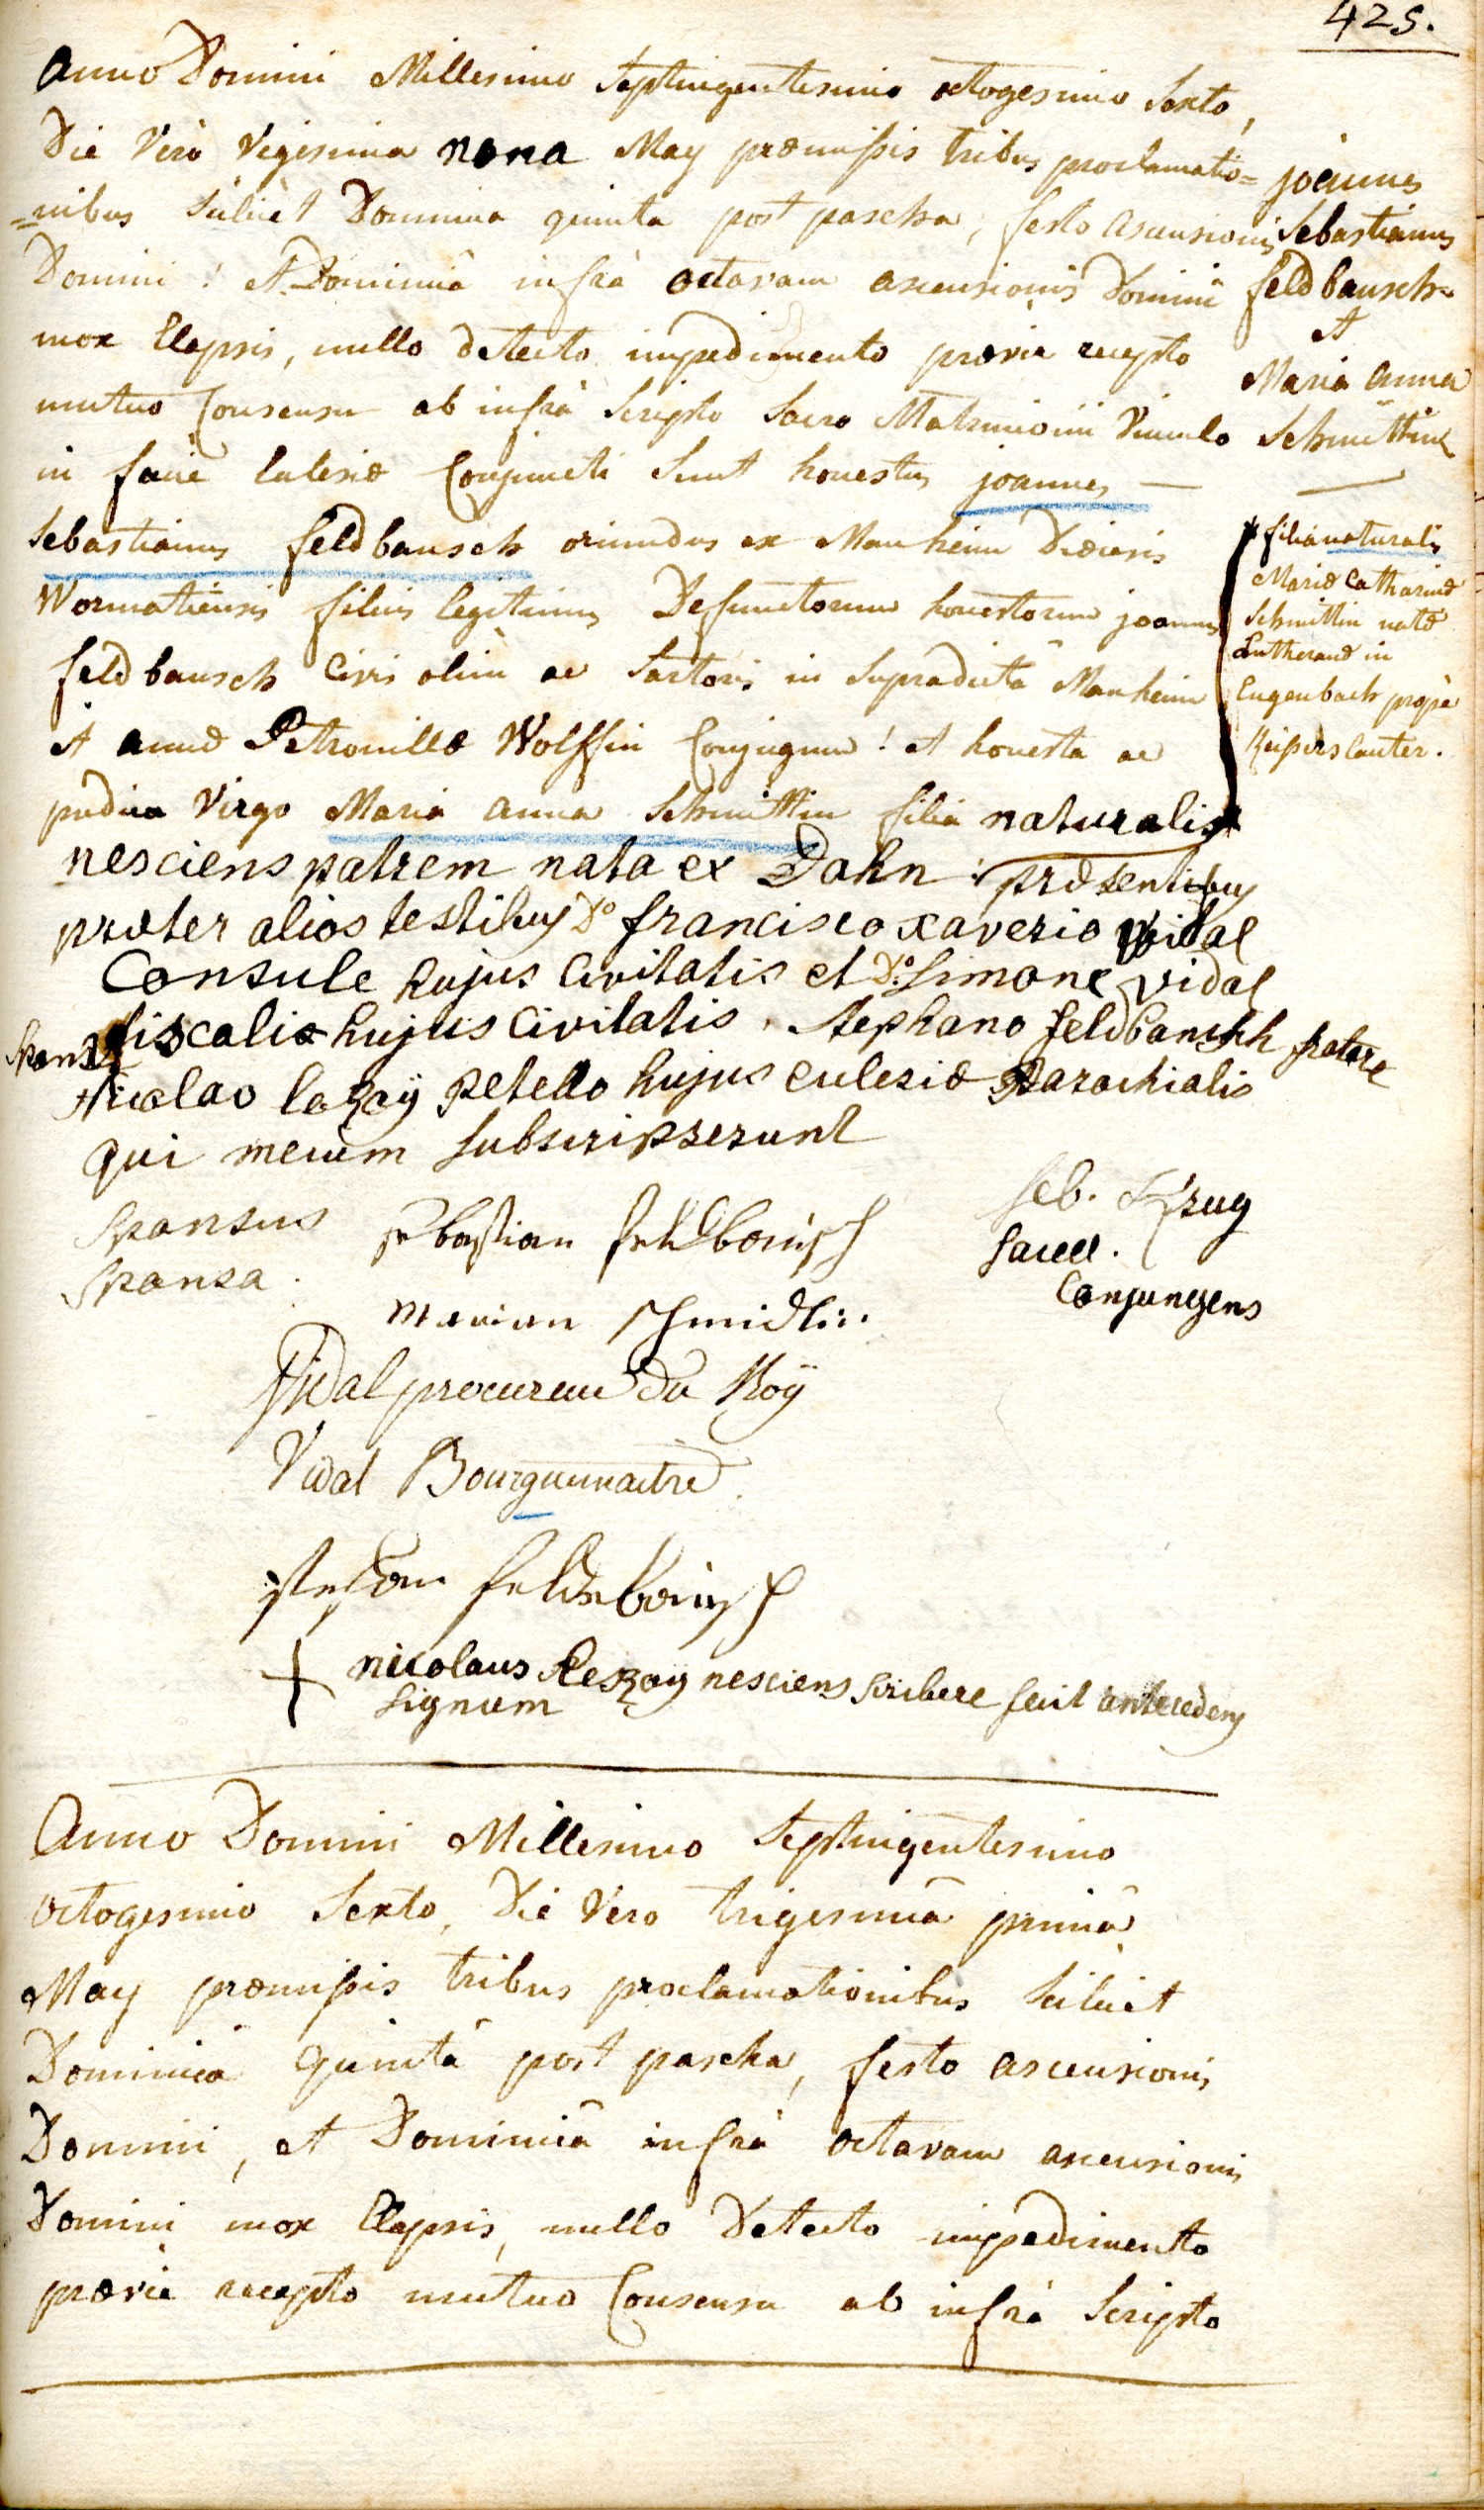 425.
Anno Domini Millesimo Septingentesimo octogesimo Sexto,
Die Vero Vigesima nona May præmissis tribus proclamatio=
=nibus Scilicet Dominica quinta post pascha, festo ascensionis
Domini! et Dominicâ infrà octavam ascensionis Domini
mox Elapsis, nullo detecto impedimento prævie recepto
mutuo Consensu ab infrà Scripto Sacro Matrimonii Vinculo
in facie Eclesiæ Conjuncti Sunt honestus joannes —
Sebastianus feldbausch oriundus ex Manheim Diœcesis
Wormatiensis filius legitimus Defunctorum honestorum joannis
feldbausch Civis olim ac Sartoris in Supradictâ Manheim
et annæ Petronillæ Wolffin Conjugum! et honesta ac
pudica Virgo Maria anna Schmittin filia naturalis
nesciens patrem nata ex Dahn : præsentibus
præter alios testibus Do francisco xaverio vidal
Consule hujus Civitatis et Do. Simone vidal
fiscalis hujus Civitatis. Stephano feldbausch fratre
Sponsi
Nicolao laRoÿ pedello hujus eclesiæ Parochialis
qui mecum subscripserunt
joannes
Sebastianus
feldbausch
et
Maria anna
Schmittin
—
filia naturalis
Mariæ Catharinæ
Schmittin natæ
Lutheranæ in
Eugenbach propè
Keisers lauter.
Sponsus Sebastian feldbausch
Sponsa. Marian schmidtin
Seb. Krug
Sacell.
Conjungens
Vidal procureur Du Roÿ
Vidal Bourguemaitre
stefan feldbausch
+ nicolaus LeRoy nesciens scribere fecit antecedens
signum
Anno Domini Millesimo Septingentesimo
octogesimo Sexto, Die Vero trigesimâ primâ
May præmissis tribus proclamationibus Scilicet
Dominicâ quintâ post pascha, festo ascensionis
Domini, et Dominicâ infrà octavam ascensionis
Domini mox Elapsis, nullo Detecto impedimento
prævie recepto mutuo Consensu ab infrà Scripto